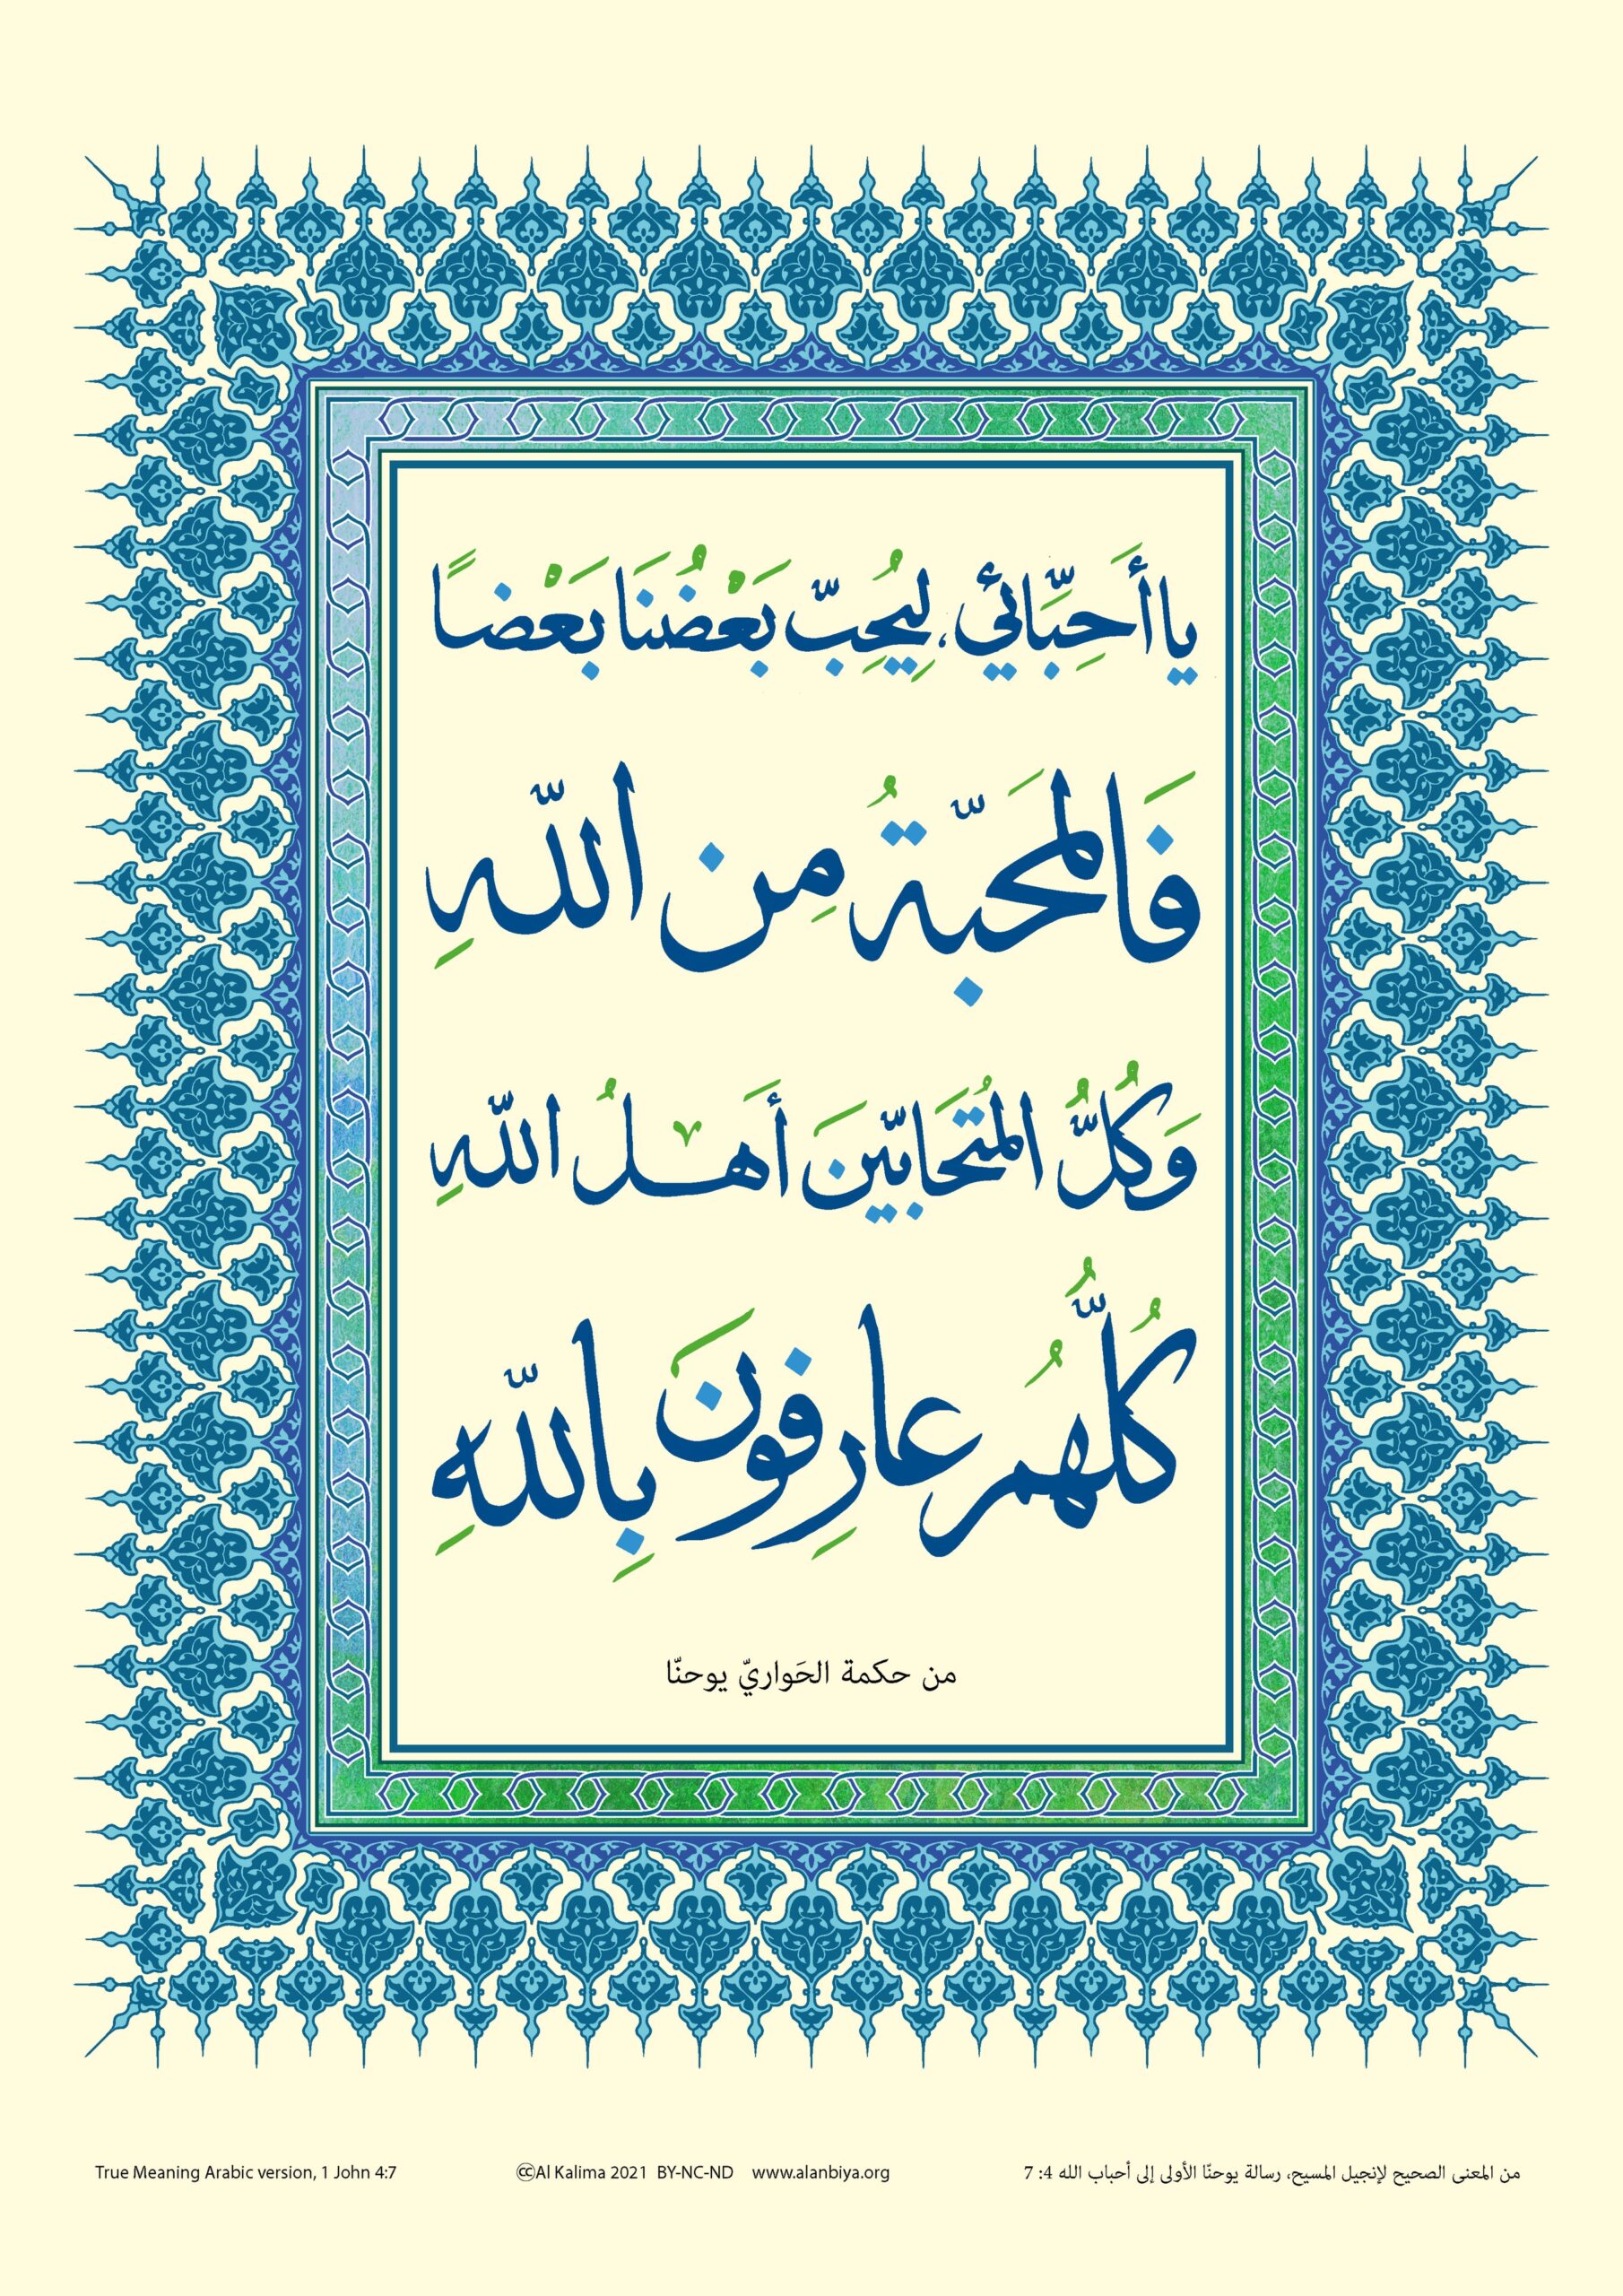 يا أَحِبَّائي، لِيُحِبّ بَعْضُنَا بَعْضاً
فَالمَحَبّةُ مِن اللّهِ
وَكُلُّ المُتَحابّينَ أَهلُ اللّهِ
كُلُّهمُ عارِفونَ بِاللّهِ
من حكمة الحَواريّ يوحنّا
True Meaning Arabic version, 1 John 4:7
🄭Al Kalima 2021 BY-NC-ND www.alanbiya.org
من المعنى الصحيح لإنجيل المسيح، رسالة يوحنّا الأولى إلى أحباب الله 4: 7